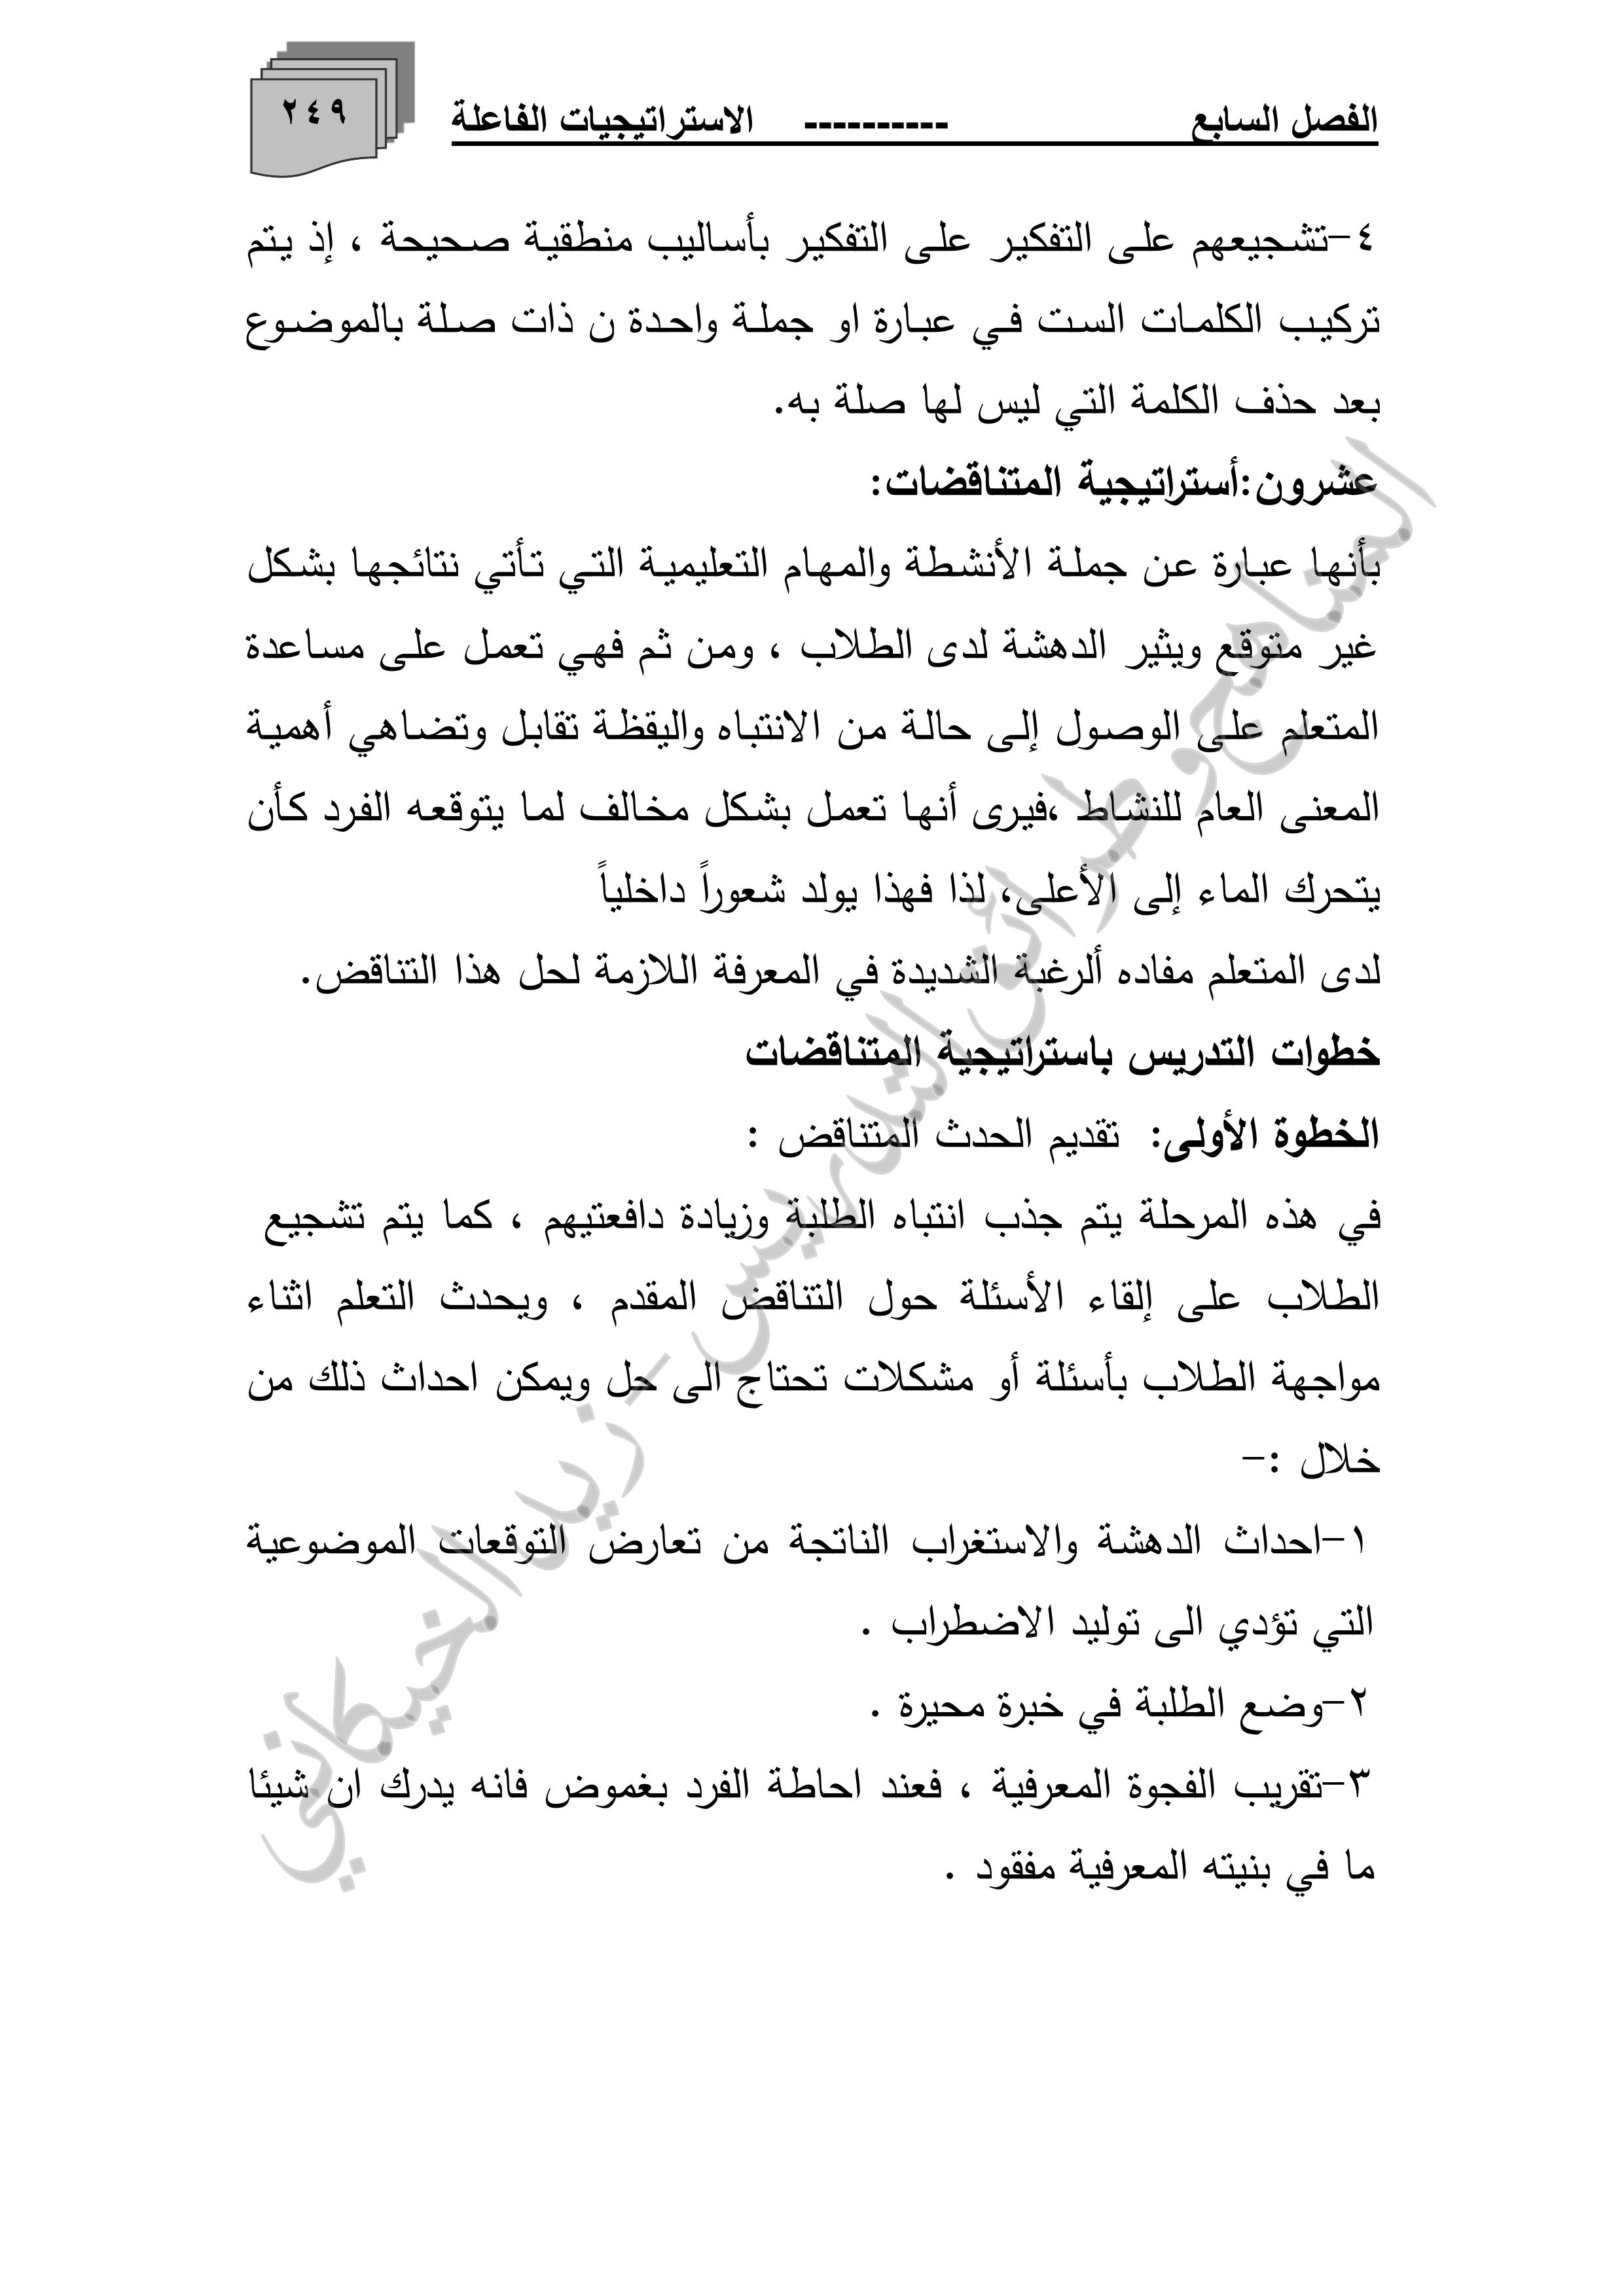 الفصل السابع ---------- الاستراتيجيات الفاعلة
٢٤٩
٤-تشجيعهم على التفكير على التفكير بأساليب منطقية صحيحة ، إذ يتم
تركيب الكلمات الست في عبارة او جملة واحدة ن ذات صلة بالموضوع
بعد حذف الكلمة التي ليس لها صلة به.
عشرون:أستراتيجية المتناقضات:
بأنها عبارة عن جملة الأنشطة والمهام التعليمية التي تأتي نتائجها بشكل
غير متوقع ويثير الدهشة لدى الطلاب ، ومن ثم فهي تعمل على مساعدة
المتعلم على الوصول إلى حالة من الانتباه واليقظة تقابل وتضاهي أهمية
المعنى العام للنشاط ،فيرى أنها تعمل بشكل مخالف لما يتوقعه الفرد كأن
يتحرك الماء إلى الأعلى، لذا فهذا يولد شعوراً داخلياً
لدى المتعلم مفاده ألرغبة الشديدة في المعرفة اللازمة لحل هذا التناقض.
خطوات التدريس باستراتيجية المتناقضات
الخطوة الأولى: تقديم الحدث المتناقض :
في هذه المرحلة يتم جذب انتباه الطلبة وزيادة دافعتيهم ، كما يتم تشجيع
الطلاب على إلقاء الأسئلة حول التناقض المقدم ، ويحدث التعلم اثناء
مواجهة الطلاب بأسئلة أو مشكلات تحتاج الى حل ويمكن احداث ذلك من
خلال :-
١-احداث الدهشة والاستغراب الناتجة من تعارض التوقعات الموضوعية
التي تؤدي الى توليد الاضطراب .
٢-وضع الطلبة في خبرة محيرة .
٣-تقريب الفجوة المعرفية ، فعند احاطة الفرد بغموض فانه يدرك ان شيئا
ما في بنيته المعرفية مفقود .
المناهج وطرائق التدريس - زيد الخيكاني